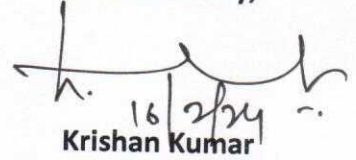 16/2/24
Krishan Kumar